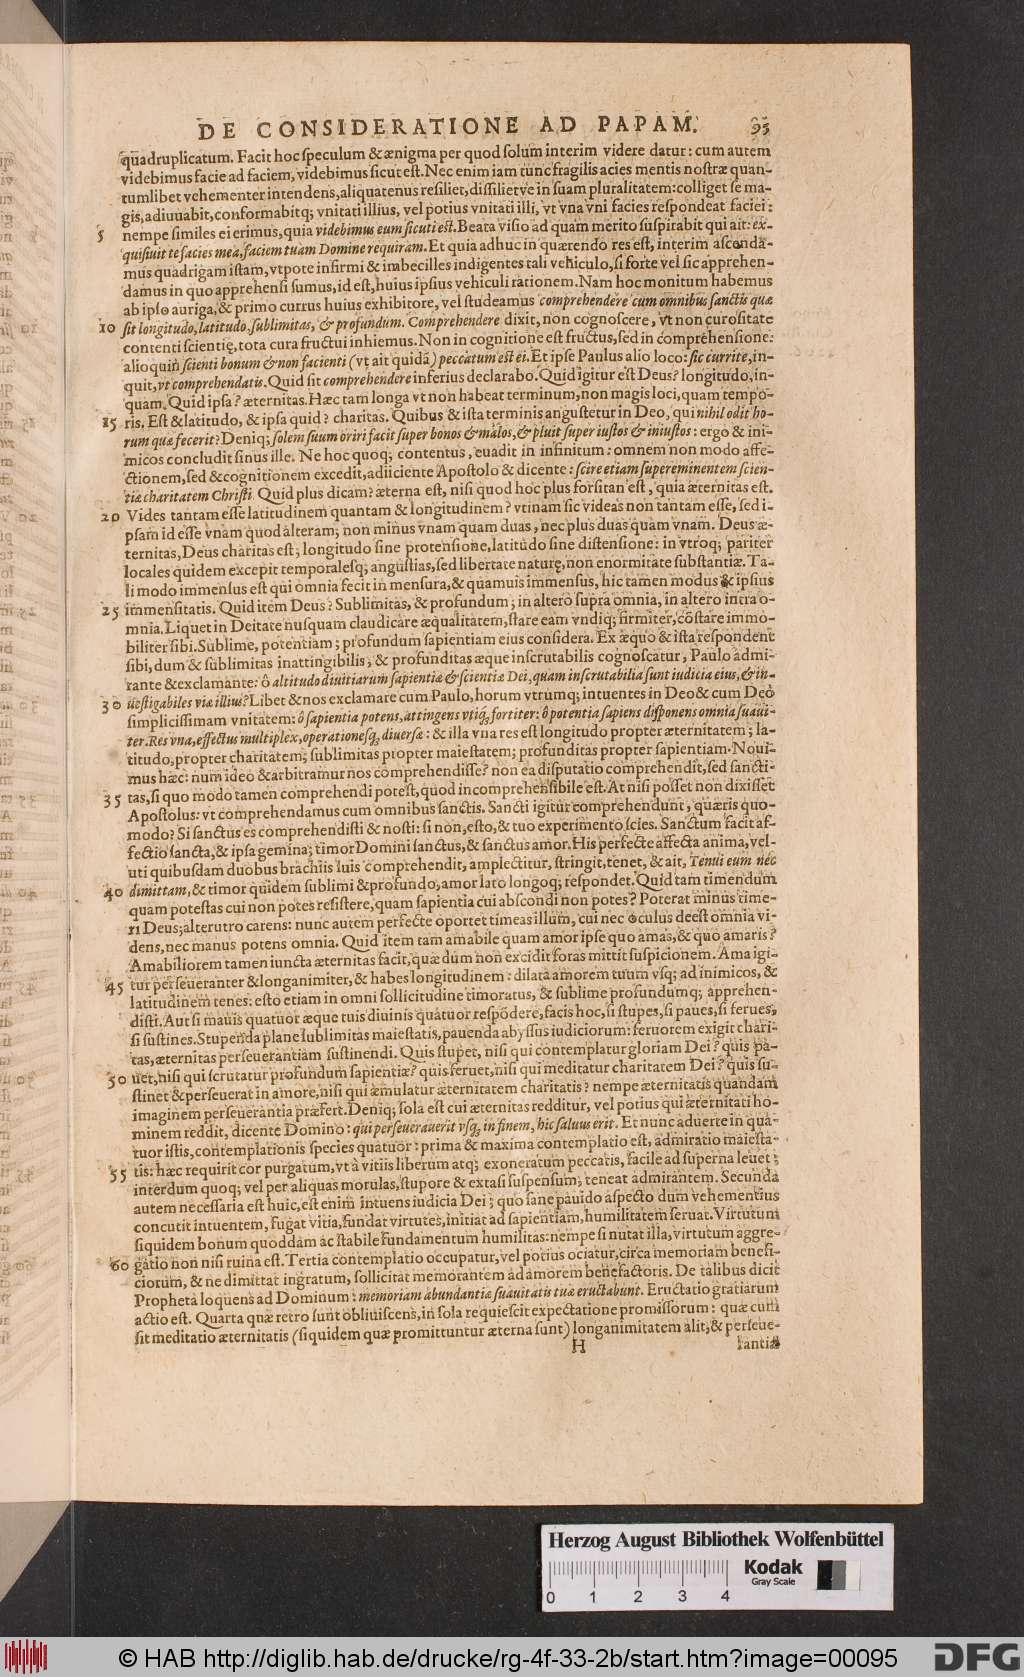 DE CONSIDERATIONE AD PAPAM. 95
quadruplicatum. Facit hoc ſpeculum & ænigma per quod ſolum interim videre datur: cum autem
videbimus facie ad faciem, videbimus ſicut eſt. Nec enim iam tunc fragilis acies mentis noſtræ quan-
tumlibet vehementer intendens, aliquatenus reſiliet, diſſilietve in ſuam pluralitatem: colliget ſe ma-
gis, adiuuabit, conformabitq; vnitati illius, vel potius vnitati illi, vt vna vni facies reſpondeat faciei:
5 nempe ſimiles ei erimus, quia videbimus eum ſicuti eſt. Beata viſio ad quam merito ſuſpirabit qui ait: ex-
quiſiuit te facies mea, faciem tuam Domine requiram. Et quia adhuc in quærendo res eſt, interim aſcenda-
mus quadrigam iſtam, vtpote infirmi & imbecilles indigentes tali vehiculo, ſi forte vel ſic apprehen-
damus in quo apprehenſi ſumus, id eſt, huius ipſius vehiculi rationem. Nam hoc monitum habemus
ab ipſo auriga, & primo currus huius exhibitore, vel ſtudeamus comprehendere cum omnibus ſanctis quæ
10 ſit longitudo, latitudo, ſublimitas, & profundum. Comprehendere dixit, non cognoſcere, vt non curoſitate
contenti ſcientię, tota cura fructui inhiemus. Non in cognitione eſt fructus, ſed in comprehenſione:
alioquin ſcienti bonum & non facienti (vt ait quidā) peccatum eſt ei. Et ipſe Paulus alio loco: ſic currite, in-
quit, vt comprehendatis. Quid ſit comprehendere inferius declarabo. Quid igitur eſt Deus? longitudo, in-
quam. Quid ipſa? æternitas. Hæc tam longa vt non habeat terminum, non magis loci, quam tempo-
15 ris. Eſt & latitudo, & ipſa quid? charitas. Quibus & iſta terminis anguſtetur in Deo, qui nihil odit ho-
rum quæ fecerit? Deniq; ſolem ſuum oriri facit ſuper bonos & malos, & pluit ſuper iuſtos & iniuſtos: ergo & ini-
micos concludit ſinus ille. Ne hoc quoq; contentus, euadit in infinitum: omnem non modo affe-
ctionem, ſed & cognitionem excedit, adiiciente Apoſtolo & dicente: ſcire etiam ſupereminentem ſcien-
tiæ charitatem Chriſti. Quid plus dicam? æterna eſt, niſi quod hoc plus forſitan eſt, quia æternitas eſt.
20 Vides tantam eſſe latitudinem quantam & longitudinem? vtinam ſic videas non tantam eſſe, ſed i-
pſam id eſſe vnam quod alteram; non minus vnam quam duas, nec plus duas quam vnam. Deus æ-
ternitas, Deus charitas eſt; longitudo ſine protenſione, latitudo ſine diſtenſione: in vtroq; pariter
locales quidem excepit temporaleſq; anguſtias, ſed libertate naturę, non enormitate ſubſtantiæ. Ta-
li modo immenſus eſt qui omnia fecit in menſura, & quamuis immenſus, hic tamen modus & ipſius
25 immenſitatis. Quid item Deus? Sublimitas, & profundum; in altero ſupra omnia, in altero intra o-
mnia. Liquet in Deitate nuſquam claudicare æqualitatem, ſtare eam vndiq; firmiter, cōſtare immo-
biliter ſibi. Sublime, potentiam; profundum ſapientiam eius conſidera. Ex æquo & iſta reſpondent
ſibi, dum & ſublimitas inattingibilis, & profunditas æque inſcrutabilis cognoſcatur, Paulo admi-
rante & exclamante: ô altitudo diuitiarum ſapientiæ & ſcientiæ Dei, quam inſcrutabilia ſunt iudicia eius, & in-
30 ueſtigabiles viæ illius? Libet & nos exclamare cum Paulo, horum vtrumq; intuentes in Deo & cum Deo
ſimpliciſſimam vnitatem: ô ſapientia potens, attingens vtiq; fortiter: ô potentia ſapiens diſponens omnia ſuaui-
ter. Res vna, effectus multiplex, operationeſq; diuerſæ: & illa vna res eſt longitudo propter æternitatem; la-
titudo, propter charitatem; ſublimitas propter maieſtatem; profunditas propter ſapientiam. Noui-
mus hæc: num ideo & arbitramur nos comprehendiſſe? non ea diſputatio comprehendit, ſed ſancti-
35 tas, ſi quo modo tamen comprehendi poteſt, quod incomprehenſibile eſt. At niſi poſſet non dixiſſet
Apoſtolus: vt comprehendamus cum omnibus ſanctis. Sancti igitur comprehendunt, quæris quo-
modo? Si ſanctus es comprehendiſti & noſti: ſi non, eſto, & tuo experimento ſcies. Sanctum facit af-
fectio ſancta, & ipſa gemina; timor Domini ſanctus, & ſanctus amor. His perfecte affecta anima, vel-
uti quibuſdam duobus brachiis ſuis comprehendit, amplectitur, ſtringit, tenet, & ait, Tenui eum nec
40 dimittam, & timor quidem ſublimi & profundo, amor lato longoq; reſpondet. Quid tam timendum
quam poteſtas cui non potes reſiſtere, quam ſapientia cui abſcondi non potes? Poterat minus time-
ri Deus; alterutro carens: nunc autem perfecte oportet timeas illum, cui nec oculus deeſt omnia vi-
dens, nec manus potens omnia. Quid item tam amabile quam amor ipſe quo amas, & quo amaris?
Amabiliorem tamen iuncta æternitas facit, quæ dum non excidit foras mittit ſuſpicionem. Ama igi-
45 tur perſeueranter & longanimiter, & habes longitudinem: dilata amorem tuum vſq; ad inimicos, &
latitudinem tenes: eſto etiam in omni ſollicitudine timoratus, & ſublime profundumq; apprehen-
diſti. Aut ſi mauis quatuor æque tuis diuinis quatuor reſpōdere, facis hoc, ſi ſtupes, ſi paues, ſi ferues,
ſi ſuſtines. Stupenda plane ſublimitas maieſtatis, pauenda abyſſus iudiciorum: feruorem exigit chari-
tas, æternitas perſeuerantiam ſuſtinendi. Quis ſtupet, niſi qui contemplatur gloriam Dei? quis pa-
50 uet, niſi qui ſcrutatur profundum ſapientiæ? quis feruet, niſi qui meditatur charitatem Dei? quis ſu-
ſtinet & perſeuerat in amore, niſi qui æmulatur æternitatem charitatis? nempe æternitatis quandam
imaginem perſeuerantia præfert. Deniq; ſola eſt cui æternitas redditur, vel potius qui æternitati ho-
minem reddit, dicente Domino: qui perſeuerauerit vſq; in finem, hic ſaluus erit. Et nunc aduerte in qua-
tuor iſtis, contemplationis ſpecies quatuor: prima & maxima contemplatio eſt, admiratio maieſta-
55 tis: hæc requirit cor purgatum, vt à vitiis liberum atq; exoneratum peccatis, facile ad ſuperna leuet;
interdum quoq; vel per aliquas morulas, ſtupore & extaſi ſuſpenſum, teneat admirantem. Secunda
autem neceſſaria eſt huic, eſt enim intuens iudicia Dei; quo ſane pauido aſpecto dum vehementius
concutit intuentem, fugat vitia, fundat virtutes, initiat ad ſapientiam, humilitatem ſeruat. Virtutum
ſiquidem bonum quoddam ac ſtabile fundamentum humilitas: nempe ſi nutat illa, virtutum aggre-
60 gatio non niſi ruina eſt. Tertia contemplatio occupatur, vel potius ociatur, circa memoriam benefi-
ciorum, & ne dimittat ingratum, ſollicitat memorantem ad amorem benefactoris. De talibus dicit
Propheta loquens ad Dominum: memoriam abundantiæ ſuauitatis tuæ eructabunt. Eructatio gratiarum
actio eſt. Quarta quæ retro ſunt obliuiſcens, in ſola requieſcit expectatione promiſſorum: quæ cum
ſit meditatio æternitatis (ſiquidem quæ promittuntur æterna ſunt) longanimitatem alit, & perſeue-
H rantiæ
Herzog August Bibliothek Wolfenbüttel
Kodak
Gray Scale
0 1 2 3 4
© HAB http://diglib.hab.de/drucke/rg-4f-33-2b/start.htm?image=00095
DFG